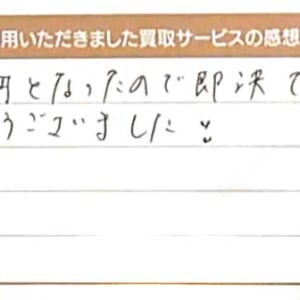 用いただきました買取サービスの感想
円となったので即決で
うございました